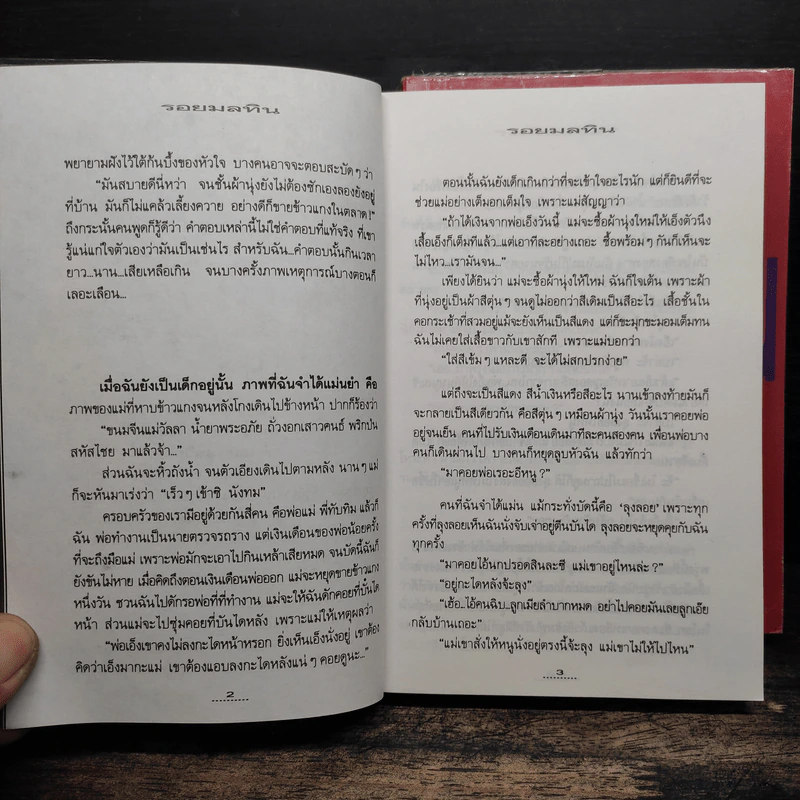 รอยมลทิน
พยายามฝังไว้ใต้ก้นบึ้งของหัวใจ บางคนอาจจะตอบสะบัดๆ ว่า
"มันสบายดีนี่หว่า จนชั้นผ้านุ่งยังไม่ต้องซักเองลองยังอยู่
ที่บ้าน มันก็ไม่แคล้วเลี้ยงควาย อย่างดีก็ขายข้าวแกงในตลาด !"
ถึงกระนั้นคนพูดก็รู้ดีว่า คำตอบเหล่านี้ไม่ใช่คำตอบที่แท้จริง ที่เขา
รู้แน่แก่ใจตัวเองว่ามันเป็นเช่นไร สำหรับฉัน...คำตอบนั้นกินเวลา
ยาว...นาน...เสียเหลือเกิน จนบางครั้งภาพเหตุการณ์บางตอนก็
เลอะเลือน...
เมื่อฉันยังเป็นเด็กอยู่นั้น ภาพที่ฉันจำได้แม่นยำ คือ
ภาพของแม่ที่หาบข้าวแกงจนหลังโกงเดินไปข้างหน้า ปากก็ร้องว่า
"ขนมจีนแม่วัลลา น้ำยาพระอภัย ถั่วงอกเสาวคนธ์ พริกป่น
สหัสไชย มาแล้วจ้า..."
ส่วนฉันจะหิ้วถังน้ำ จนตัวเอียงเดินไปตามหลัง นานๆ แม่
ก็จะหันมาเร่งว่า "เร็วๆ เข้าซิ นังทม"
ครอบครัวของเรามีอยู่ด้วยกันสี่คน คือพ่อแม่ พี่ทับทิม แล้วก็
ฉัน พ่อทำงานเป็นนายตรวจรถราง แต่เงินเดือนของพ่อน้อยครั้ง
ที่จะถึงมือแม่ เพราะพ่อมักจะเอาไปกินเหล้าเสียหมด จนบัดนี้ฉันก็
ยังขันไม่หาย เมื่อคิดถึงตอนเงินเดือนพ่อออก แม่จะหยุดขายข้าวแกง
หนึ่งวัน ชวนฉันไปดักรอพ่อที่ที่ทำงาน แม่จะให้ฉันดักคอยที่บันได
หน้า ส่วนแม่จะไปซุ่มคอยที่บันไดหลัง เพราะแม่ให้เหตุผลว่า
"พ่อเอ็งเขาคงไม่ลงกะไดหน้าหรอก ยิ่งเห็นเอ็งนั่งอยู่ เขาต้อง
คิดว่าเอ็งมากะแม่ เขาต้องแอบลงกะไดหลังแน่ๆ คอยดูนะ..."
2
รอยมลทิน
ตอนนั้นฉันยังเด็กเกินกว่าที่จะเข้าใจอะไรนัก แต่ก็ยินดีที่จะ
ช่วยแม่อย่างเต็มอกเต็มใจ เพราะแม่สัญญาว่า
"ถ้าได้เงินจากพ่อเอ็งวันนี้ แม่จะซื้อผ้านุ่งใหม่ให้เอ็งตัวนึง
เสื้อเอ็งก็เต็มทีแล้ว...แต่เอาทีละอย่างเถอะ ซื้อพร้อมๆ กันก็เห็นจะ
ไม่ไหว...เรามันจน..."
เพียงได้ยินว่า แม่จะซื้อผ้านุ่งให้ใหม่ ฉันก็ใจเต้น เพราะผ้า
ที่นุ่งอยู่เป็นผ้าสีตุ่นๆ จนดูไม่ออกว่าสีเดิมเป็นสีอะไร เสื้อชั้นใน
คอกระเช้าที่สวมอยู่แม้จะยังเห็นเป็นสีแดง แต่ก็ขะมุกขะมอมเต็มทน
ฉันไม่เคยใส่เสื้อขาวกับเขาสักที เพราะแม่บอกว่า
"ใส่สีเข้มๆ แหละดี จะได้ไม่สกปรกง่าย"
แต่ถึงจะเป็นสีแดง สีน้ำเงินหรือสีอะไร นานเข้าลงท้ายมันก็
จะกลายเป็นสีเดียวกัน คือสีตุ่นๆ เหมือนผ้านุ่ง วันนั้นเราคอยพ่อ
อยู่จนเย็น คนที่ไปรับเงินเดือนเดินมาทีละคนสองคน เพื่อนพ่อบาง
คนก็เดินผ่านไป บางคนก็หยุดลูบหัวฉัน แล้วทักว่า
"มาคอยพ่อเรอะอีหนู ?"
คนที่ฉันจำได้แม่น แม้กระทั่งบัดนี้คือ 'ลุงลอย' เพราะทุก
ครั้งที่ลุงลอยเห็นฉันนั่งจับเจ่าอยู่ตีนบันได ลุงลอยจะหยุดคุยกับฉัน
ทุกครั้ง
"มาคอยไอ้นกปรอดสินละซี แม่เขาอยู่ไหนล่ะ ?"
"อยู่กะไดหลังจ้ะลุง"
"เฮ้อ...ไอ้คนฉิบ...ลูกเมียลำบากหมด อย่าไปคอยมันเลยลูกเอ๊ย
กลับบ้านเถอะ"
"แม่เขาสั่งให้หนูนั่งอยู่ตรงนี้จ้ะลุง แม่เขาไม่ให้ไปไหน"
3